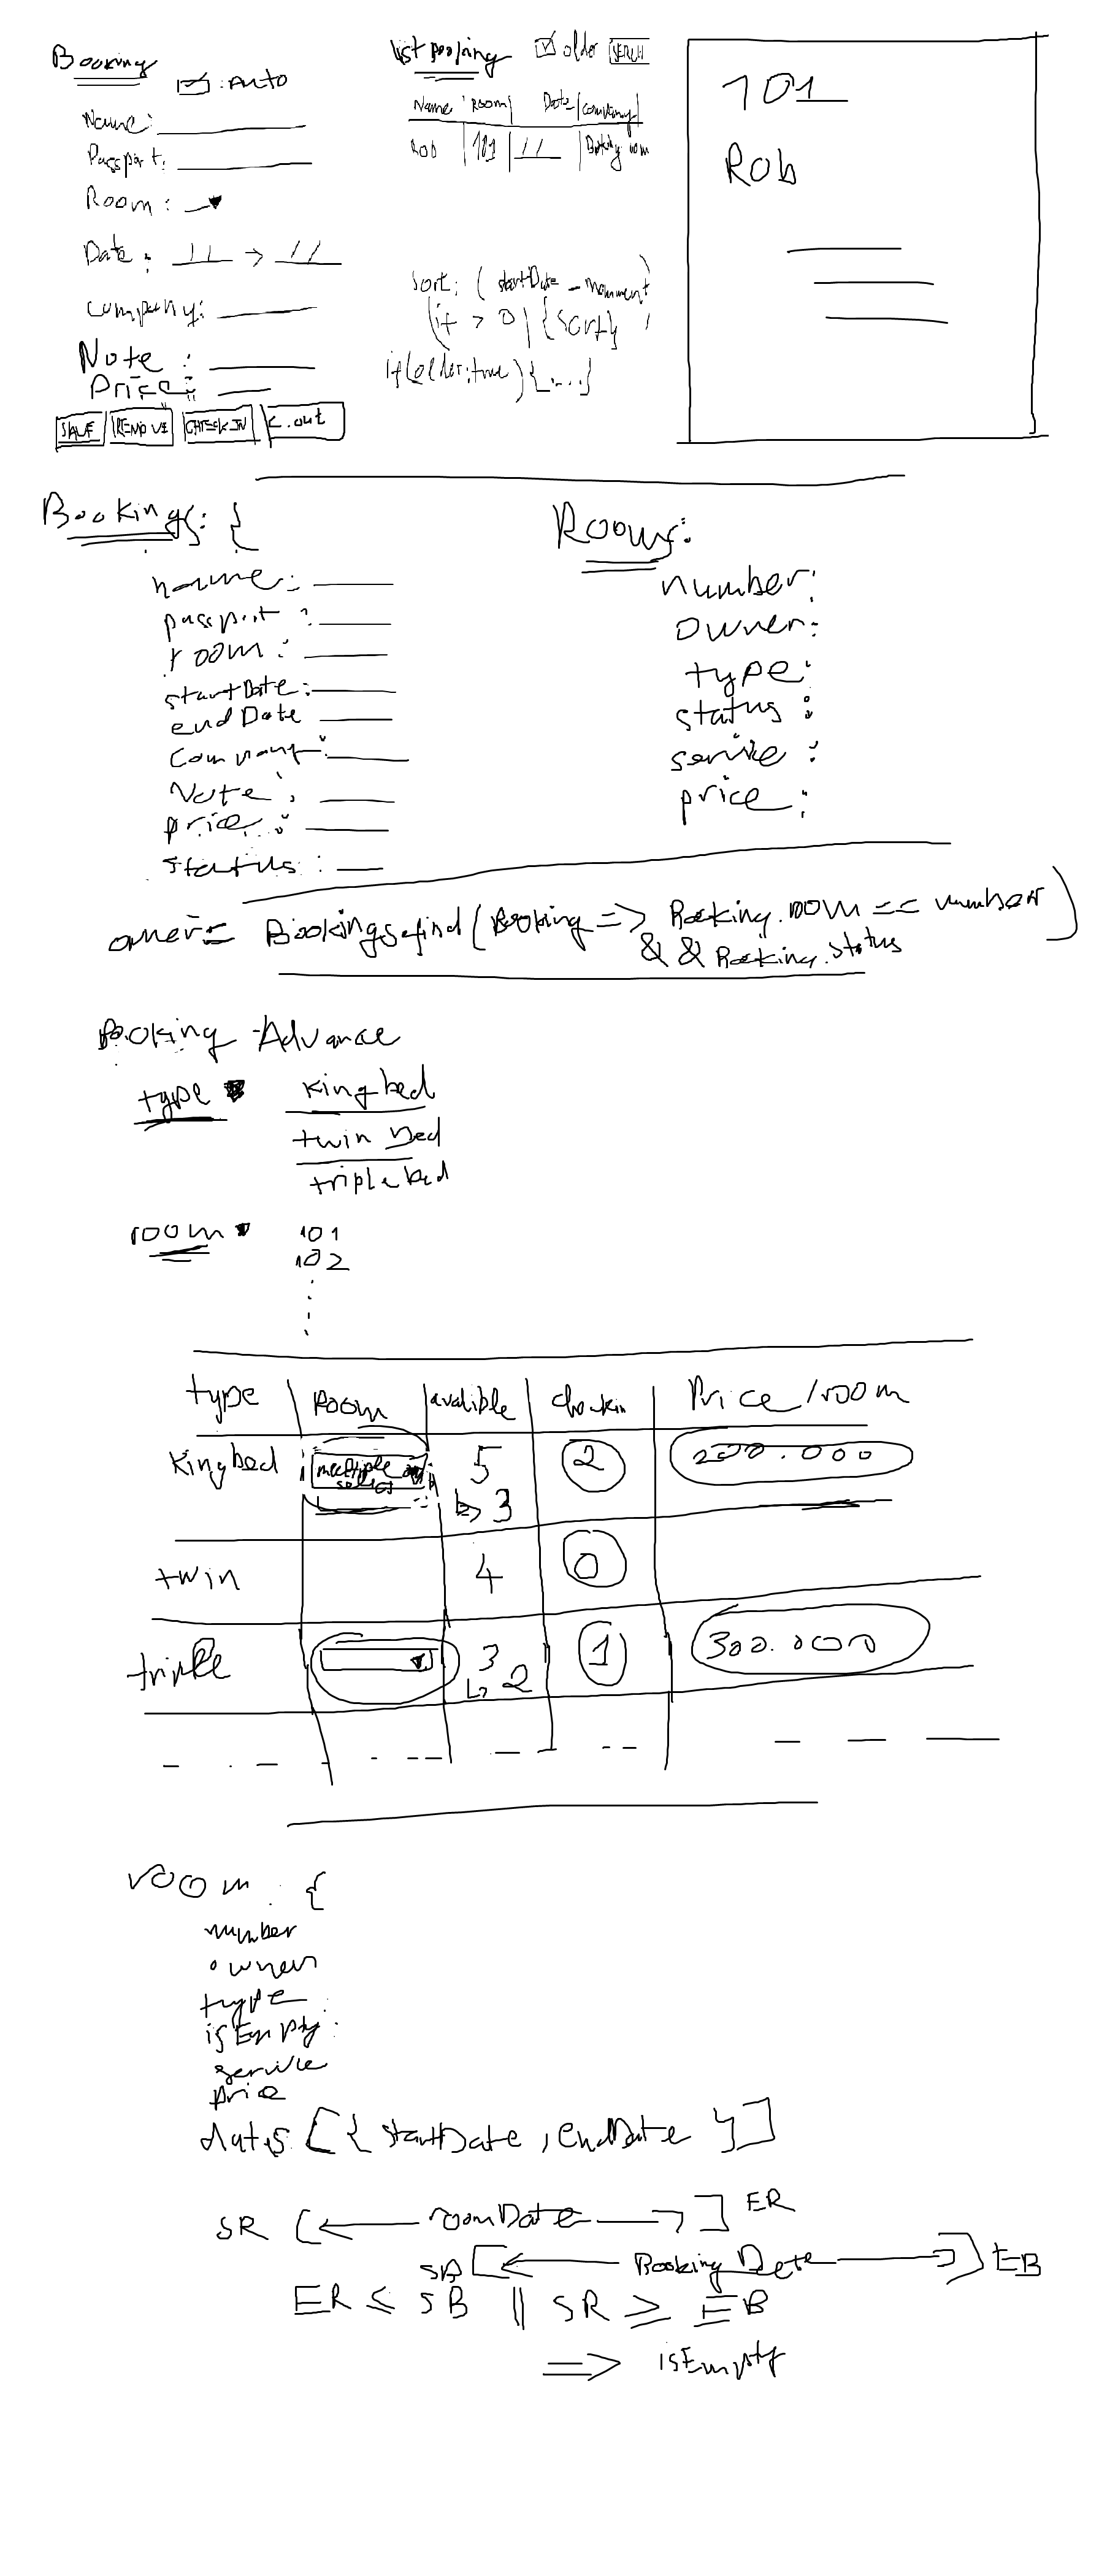 Booking
: AUTO
Name:
Passport:
Room:
Date: // -> //
company:
Note:
Price:
SAVE REMOVE CHECK IN C.out
list booking older SERCH
Name Room Date company
Rob 101 // Booking com
sort: (startDate - moment)
(it > 0) {sort}
if(older:true){....}
101
Rob
Bookings: {
name:
passport:
room:
startDate:
endDate
Company:
Note:
price:
status:
Rooms:
number:
owner:
type:
status:
service:
price:
owner = Bookings.find(Booking => Booking.room == number
&& Booking.status)
Booking Advance
type king bed
twin bed
triple bed
room 101
102
type Room avalible checkin Price / room
King bed multiple select 5 2 200.000
3
twin 4 0
triple 3 1 300.000
2
room: {
number
owner
type
isEmpty:
service
price
dates [{startDate, endDate}]
SR [<— roomDate —>] ER
SB [<— Booking Date —>] EB
ER ≤ SB || SR ≥ EB
=> isEmpty